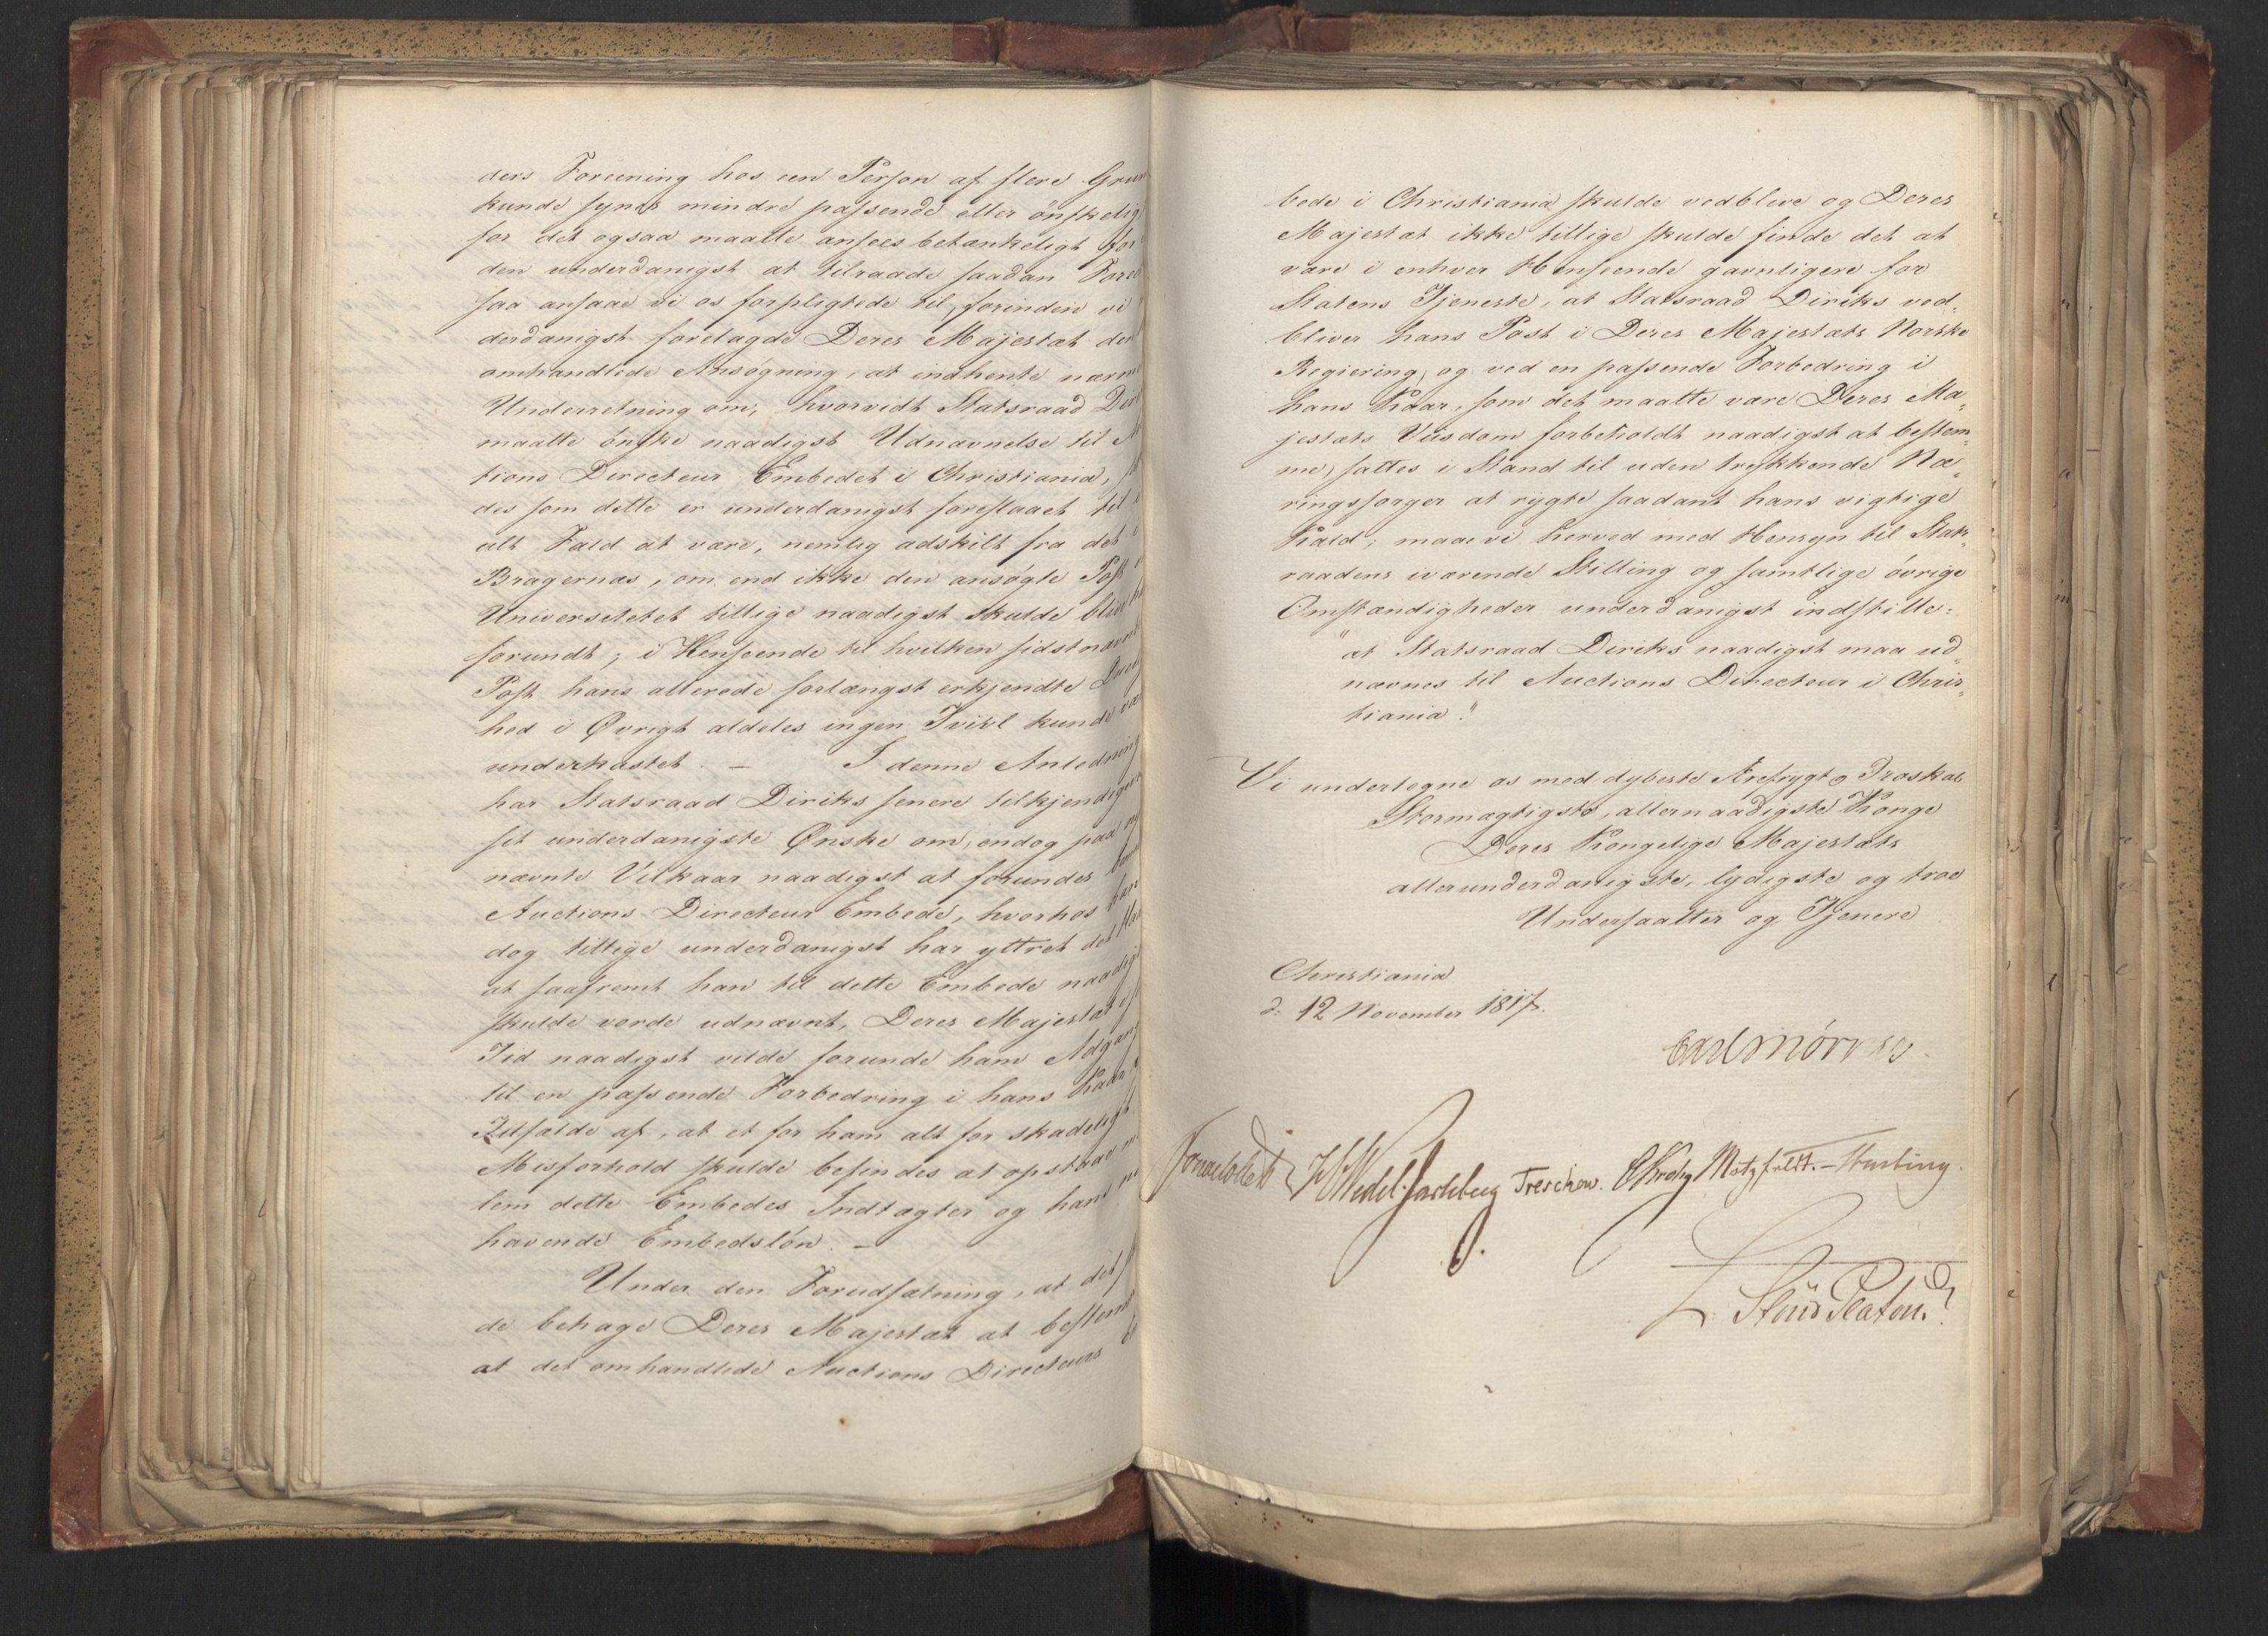 ders Foreening hos een Person af flere Grun
kunde synes mindre passende eller ønskelig
for det ogsaa maatte ansees betænkeligt for
den underdanigst at tilraade saadan Foree
saa ansaae vi os forpligtede til, forinden vi
derdanigst foretagde Deres Majestæt den
omhandlede Ansøgning, at indhente nærm
Underretning om, hvorvidt Statsraad Diri
maatte ønske naadigst Udnævnelse til A
tions Directeur Embedet i Christiania,
des som dette er underdanigst foreslaaet til
alt Fald at være, nemlig adskilt fra det
Bragernæs, om end ikke den ansøgte Post
Universitetet tillige naadigst skulde blive
forundt; i Henseende til hvilken sidstnævnte
Post hans allerede forlængst erkjendte
hed i Øvrigt aldeles ingen Tvivl kunde væ
underkastet. — I denne Anledning
har Statsraad Diriks senere tilkjendigivet
sit underdanigste Ønske om, endog paa
nævnte Vilkaar naadigst at forundes
Auctions-Directeur Embede, hvorhos han
dog tillige underdanigst har yttret det
at saafremt han til dette Embede naadigst
skulde vorde udnævnt, Deres Majestæt
Tid naadigst vilde forunde ham Adgang
til en passende Forbedring i hans Kaar
Tilfælde af, at et for ham alt for skadeligt
Misforhold skulde befindes at opstaae
lem dette Embedes Indtægter og hans
havende Embedsløn. —
Under den Forudsætning, at det
de behage Deres Majestæt at bestem
at det omhandlede Auctions Directeurs
bede i Christiania skulde vedblive og Deres
Majestæt ikke tillige skulde finde det at
være i enhver Henseende gavnligere for
Statens Tjeneste, at Statsraad Diriks ved-
bliver hans Post i Deres Majestæts Norske
Regiering, og ved en passende Forbedring i
hans Kaar, som det maatte være Deres Ma-
jestæts Viisdom forbeholdt naadigst at bestem-
me, sættes i Stand til uden trykkende Næ-
ringssorger at rygte saadant hans vigtige
Kald; maae vi herved med Hensyn til Stats-
raadens iværende Stilling og samtlige øvrige
Omstændigheder underdanigst indstille:
"at Statsraad Diriks naadigst maa ud-
nævnes til Auctions Directeur i Chris-
tiania."
Vi undertegne os med dybeste Ærefrygt og Troskab
Stormægtigste, allernaadigste Konge
Deres Kongelige Majestæts
allerunderdanigste, lydigste og troe
Undersaatter og Tjenere
Christiania
d. 12 November 1817.
Carl Mörner.
Jonas Collett HWedel-Jarlsberg Treschow. CKrohg Motzfeldt.